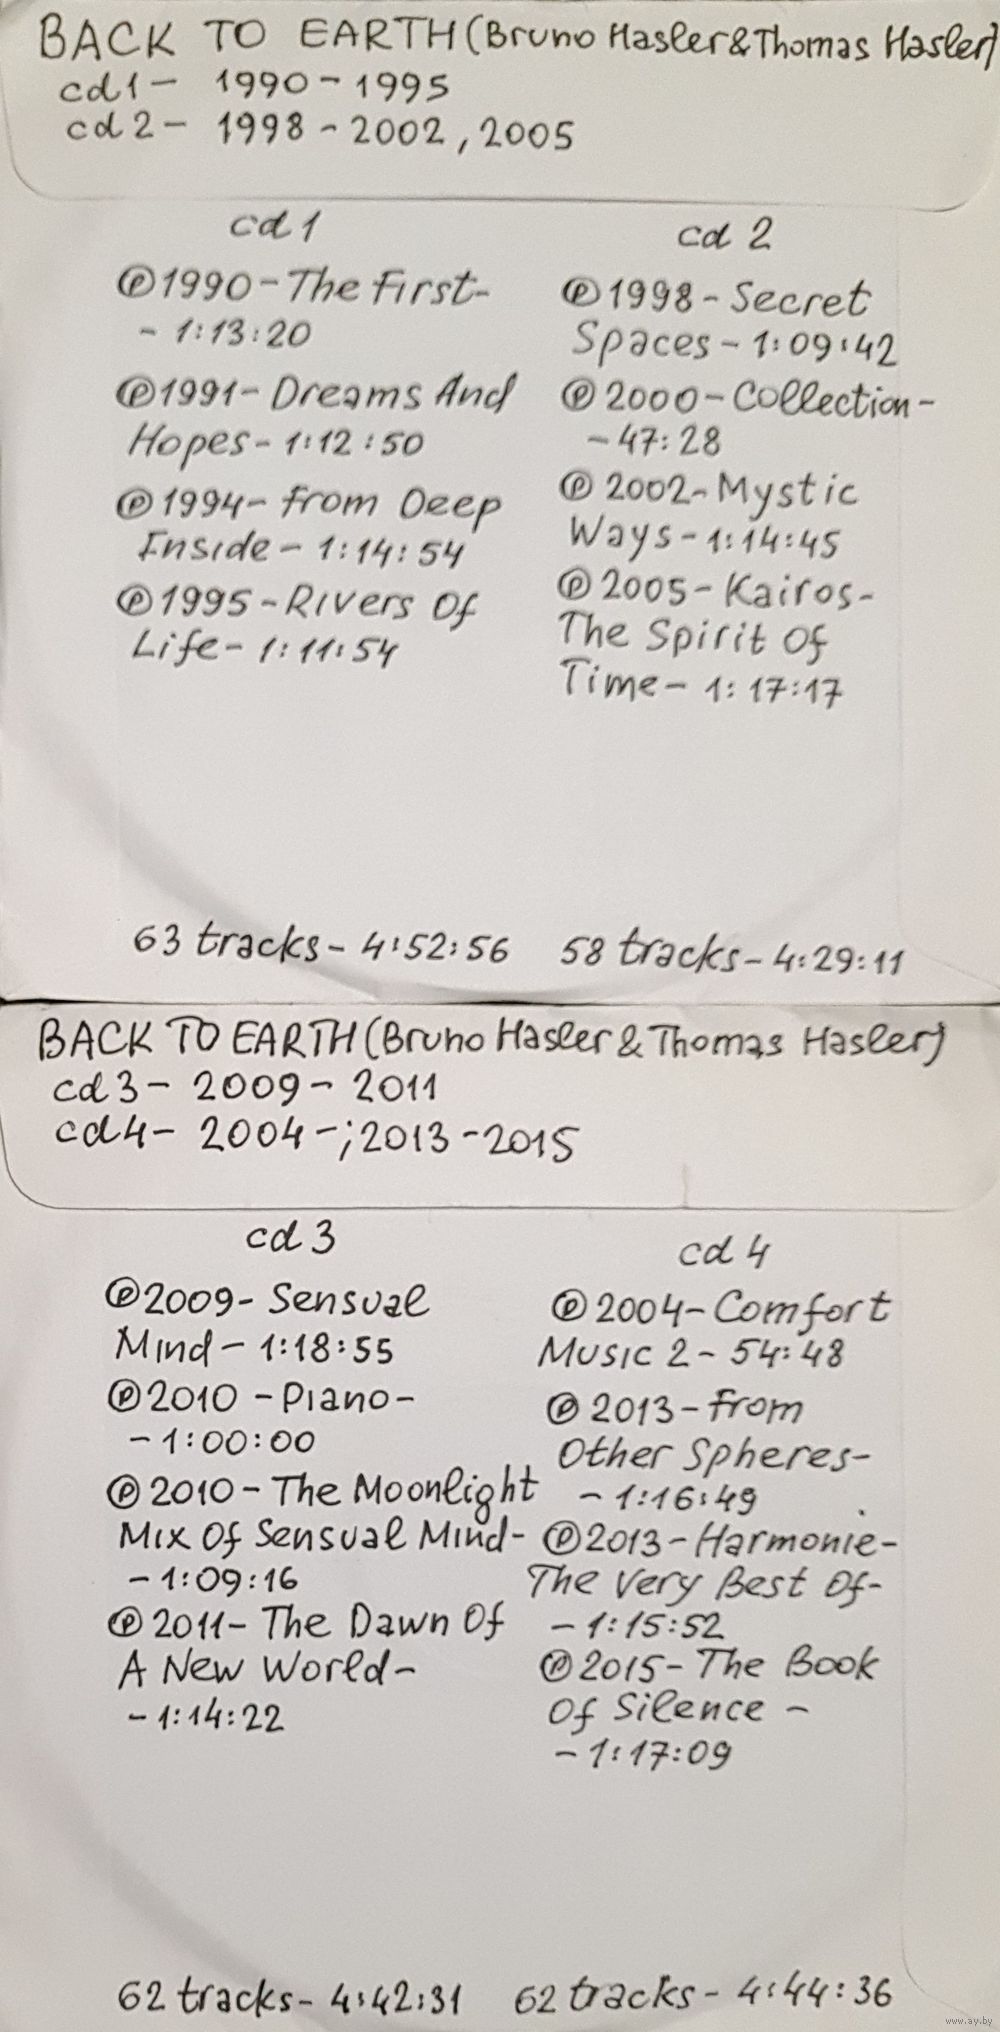 BACK TO EARTH (Bruno Hasler & Thomas Hasler)
cd 1 - 1990 - 1995
cd 2 - 1998 - 2002, 2005
cd 1
℗ 1990 - The First -
- 1:13:20
℗ 1991 - Dreams And
Hopes - 1:12:50
℗ 1994 - From Deep
Inside - 1:14:54
℗ 1995 - Rivers Of
Life - 1:11:54
63 tracks - 4:52:56
cd 2
℗ 1998 - Secret
Spaces - 1:09:42
℗ 2000 - Collection -
- 47:28
℗ 2002 - Mystic
Ways - 1:14:45
℗ 2005 - Kairos -
The Spirit Of
Time - 1:17:17
58 tracks - 4:29:11
BACK TO EARTH (Bruno Hasler & Thomas Hasler)
cd 3 - 2009 - 2011
cd 4 - 2004 -; 2013 - 2015
cd 3
℗ 2009 - Sensual
Mind - 1:18:55
℗ 2010 - Piano -
- 1:00:00
℗ 2010 - The Moonlight
Mix Of Sensual Mind -
- 1:09:16
℗ 2011 - The Dawn Of
A New World -
- 1:14:22
62 tracks - 4:42:31
cd 4
℗ 2004 - Comfort
Music 2 - 54:48
℗ 2013 - From
Other Spheres -
- 1:16:49
℗ 2013 - Harmonie -
The Very Best Of -
- 1:15:52
℗ 2015 - The Book
Of Silence -
- 1:17:09
62 tracks - 4:44:36
www.ay.by